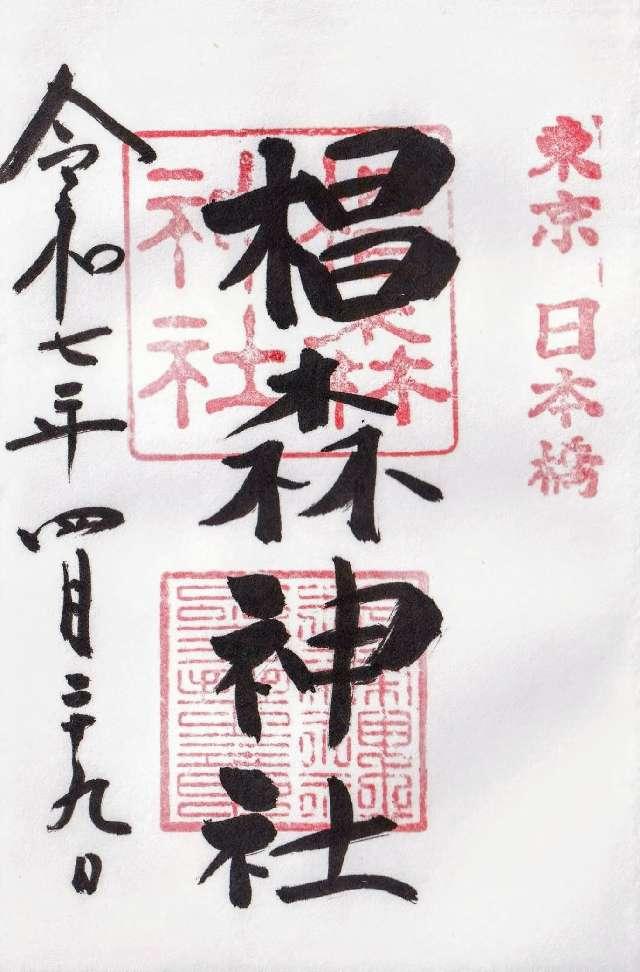 東京 日本橋
椙森神社
椙森
神社
令和七年四月二十九日